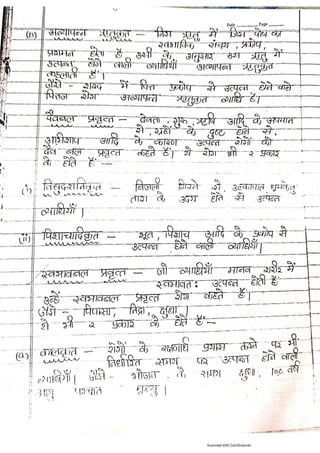 Date ______ Page ______
(ii) अव्यापन्न ऋतुकृत - जिस ऋतु में जिस दोष का
स्वभाविक संचय, प्रकोप,
प्रशमन होता है, उसी के अनुसार उस ऋतु में
उत्पन्न होने वाली व्याधियाँ अव्यापन्न ऋतुकृत
कहलाती हैं।
जैसे - शरद में पित्त प्रकोप से उत्पन्न होने वाले
पित्तज रोग अव्यापन्न ऋतुकृत व्याधि हैं।
दैवबल प्रवृत्त - देवता, गुरू, ऋषि आदि के अपमान
से, ग्रहों के दुष्ट होने से,
अभिशाप आदि के कारण उत्पन्न रोगों को
दैव बल प्रवृत्त कहते हैं। ये रोग भी २ प्रकार
के होते हैं --
(i) विद्युदशनिकृत - बिजली गिरने से, उल्कापात धूमकेतु
तारा के उदय होने से उत्पन्न
व्याधियाँ।
(ii) पिशाचादिकृत - भूत, पिशाच आदि के प्रकोप से
उत्पन्न होने वाली व्याधियाँ।
स्वभावबल प्रवृत्त - जो व्याधियाँ मानव शरीर में
स्वभावतः उत्पन्न होती हैं
उन्हें स्वभावबल प्रवृत्त रोग कहते हैं।
जैसे - पिपासा, निद्रा, क्षुधा।
ये भी २ प्रकार के होते हैं-
कालकृत - रोगों के रक्षणार्थ प्रयास करने पर भी
निर्धारित समय पर उत्पन्न होने वाली
व्याधियाँ। जैसे - भोजन के समय क्षुधा, १०० वर्ष
आयु पश्चात मृत्यु।
Scanned with CamScanner